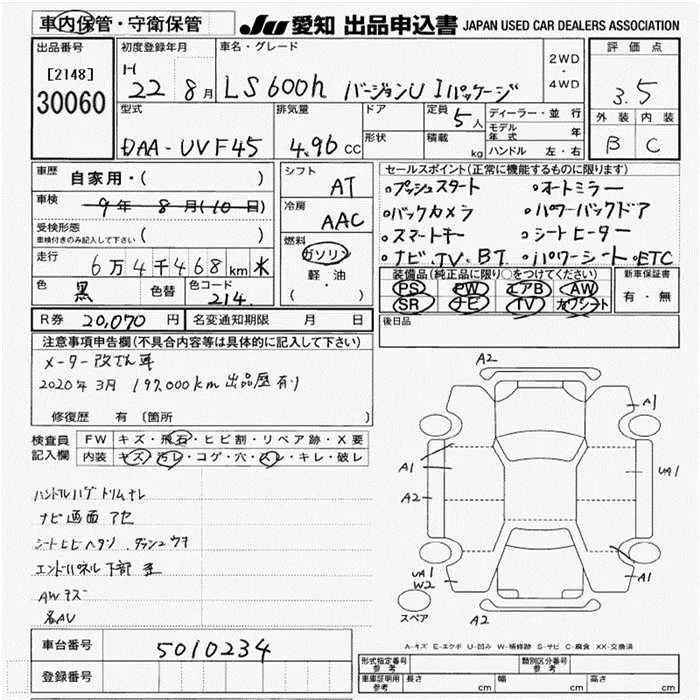 車内保管・守衛保管
JU 愛知 出品申込書 JAPAN USED CAR DEALERS ASSOCIATION
出品番号
[2148]
30060
初度登録年月
H 22 8月
車名・グレード
LS600h バージョンU Iパッケージ
2WD
・
4WD
評価点
3.5
外装 内装
B C
型式
DAA-UVF45
排気量
4.96 cc
ドア
形状
定員 5人
積載 kg
ディーラー・並行
モデル年式 年
ハンドル 左・右
車歴 自家用・( )
車検 9年 8月(10日)
受検形態
車検付きのみ記入して下さい ( )
走行 6万4千468km 米
色 黒 色替 色コード 214
シフト
AT
冷房
AAC
燃料
ガソリン
軽・油
( )
セールスポイント(正常に機能するものに限ります)
・プッシュスタート ・オートミラー
・バックカメラ ・パワーバックドア
・スマートキー ・シートヒーター
・ナビ.TV.BT ・パワーシート・ETC
装備品(純正品に限り○をつけてください)
PS PW エアB AW
SR ナビ TV カワシート
新車保証書
有・無
R券 20,070円 名変通知期限 月 日
後日品
注意事項申告欄(不具合内容等は具体的に記入して下さい)
メーター改ざん車
2020年3月 197,000km 出品歴有り
修復歴 有 (箇所 )
検査員記入欄
FW キズ・飛石・ヒビ割・リペア跡・X要
内装 キズ・汚レ・コゲ・穴・スレ・キレ・破レ
ナビ画面 アセ
エンドパネル下部
AWキズ
各AU
A2
A1
A1
A2
UA1
UA1
W2
A1
A2
スペア
A-キズ E-エクボ U-凹み W-補修跡 S-サビ C-腐食 XX-交換済
車台番号 5010234
登録番号
形式指定番号
参考
類別区分番号
参考
車庫証明用
参考
長さ cm 幅 cm 高さ cm